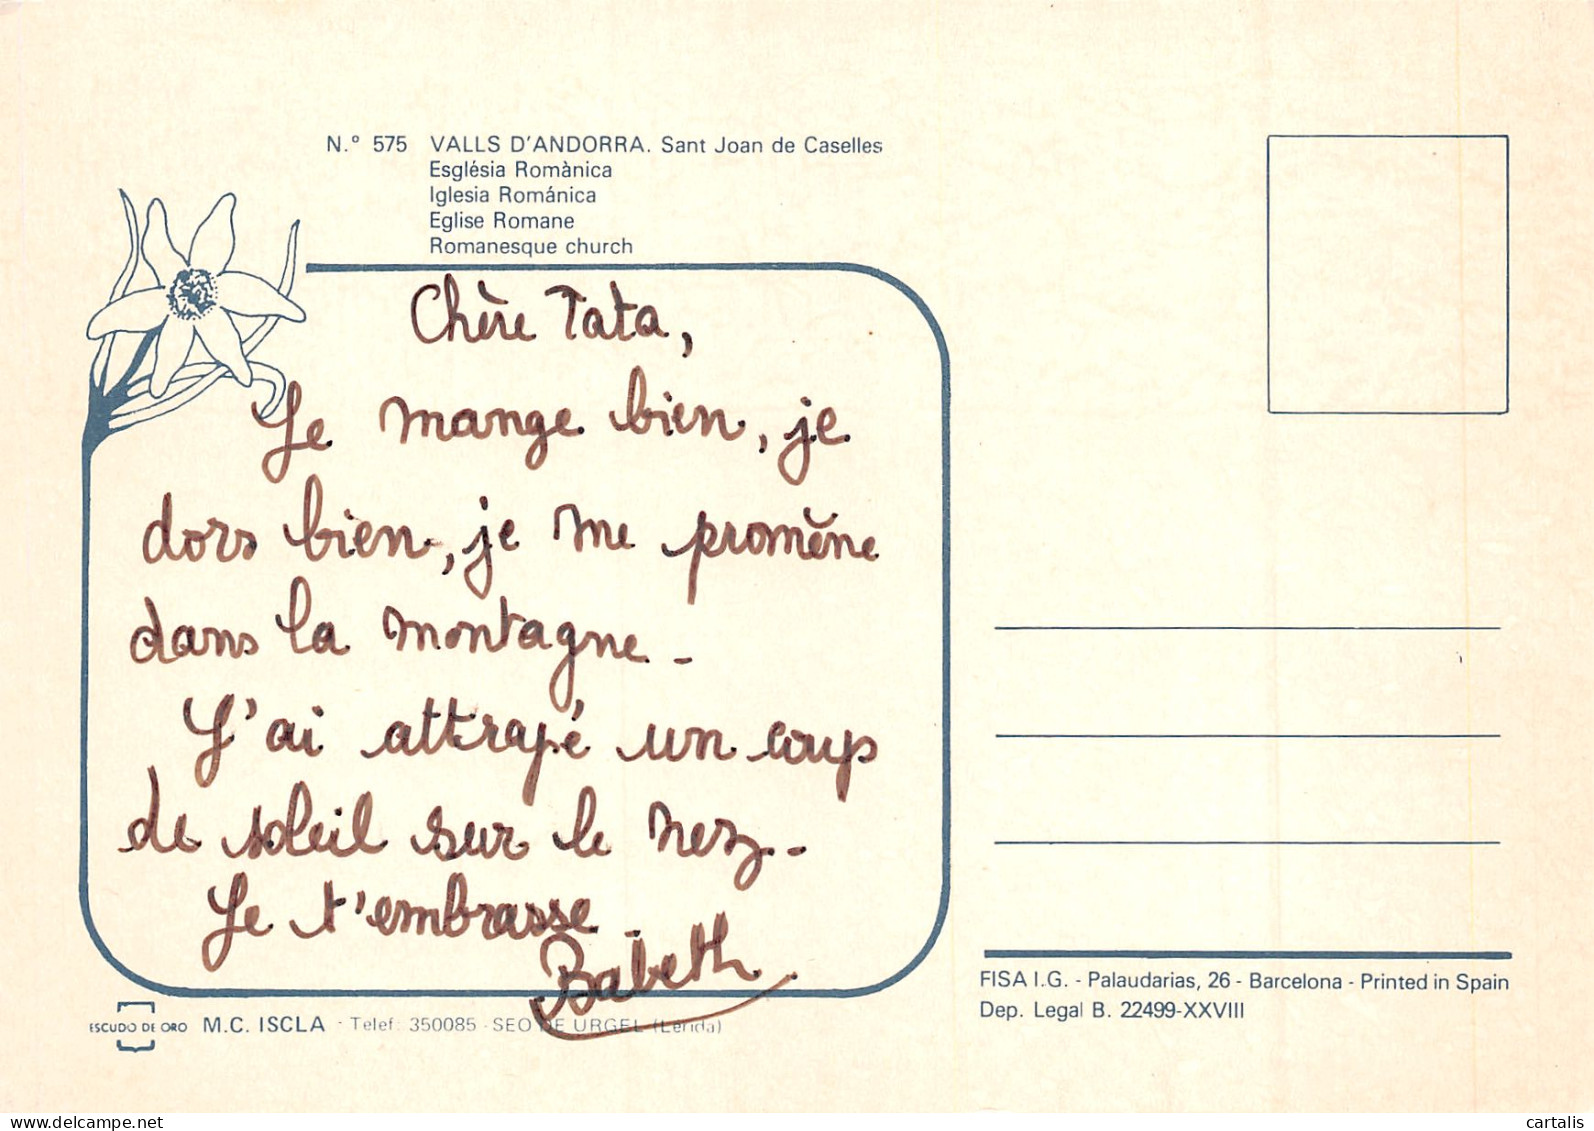 N.° 575 VALLS D'ANDORRA. Sant Joan de Caselles
Església Romànica
Iglesia Románica
Eglise Romane
Romanesque church
Chère Tata,
Je mange bien, je
dors bien, je me promène
dans la montagne -
J'ai attrapé un coup
de soleil sur le nez -
Je t'embrasse -
Babeth
FISA I.G. - Palaudarias, 26 - Barcelona - Printed in Spain
Dep. Legal B. 22499-XXVIII
ESCUDO DE ORO M.C. ISCLA - Telef: 350085 - SEO DE URGEL (Lérida)
delcampe.net
cartalis